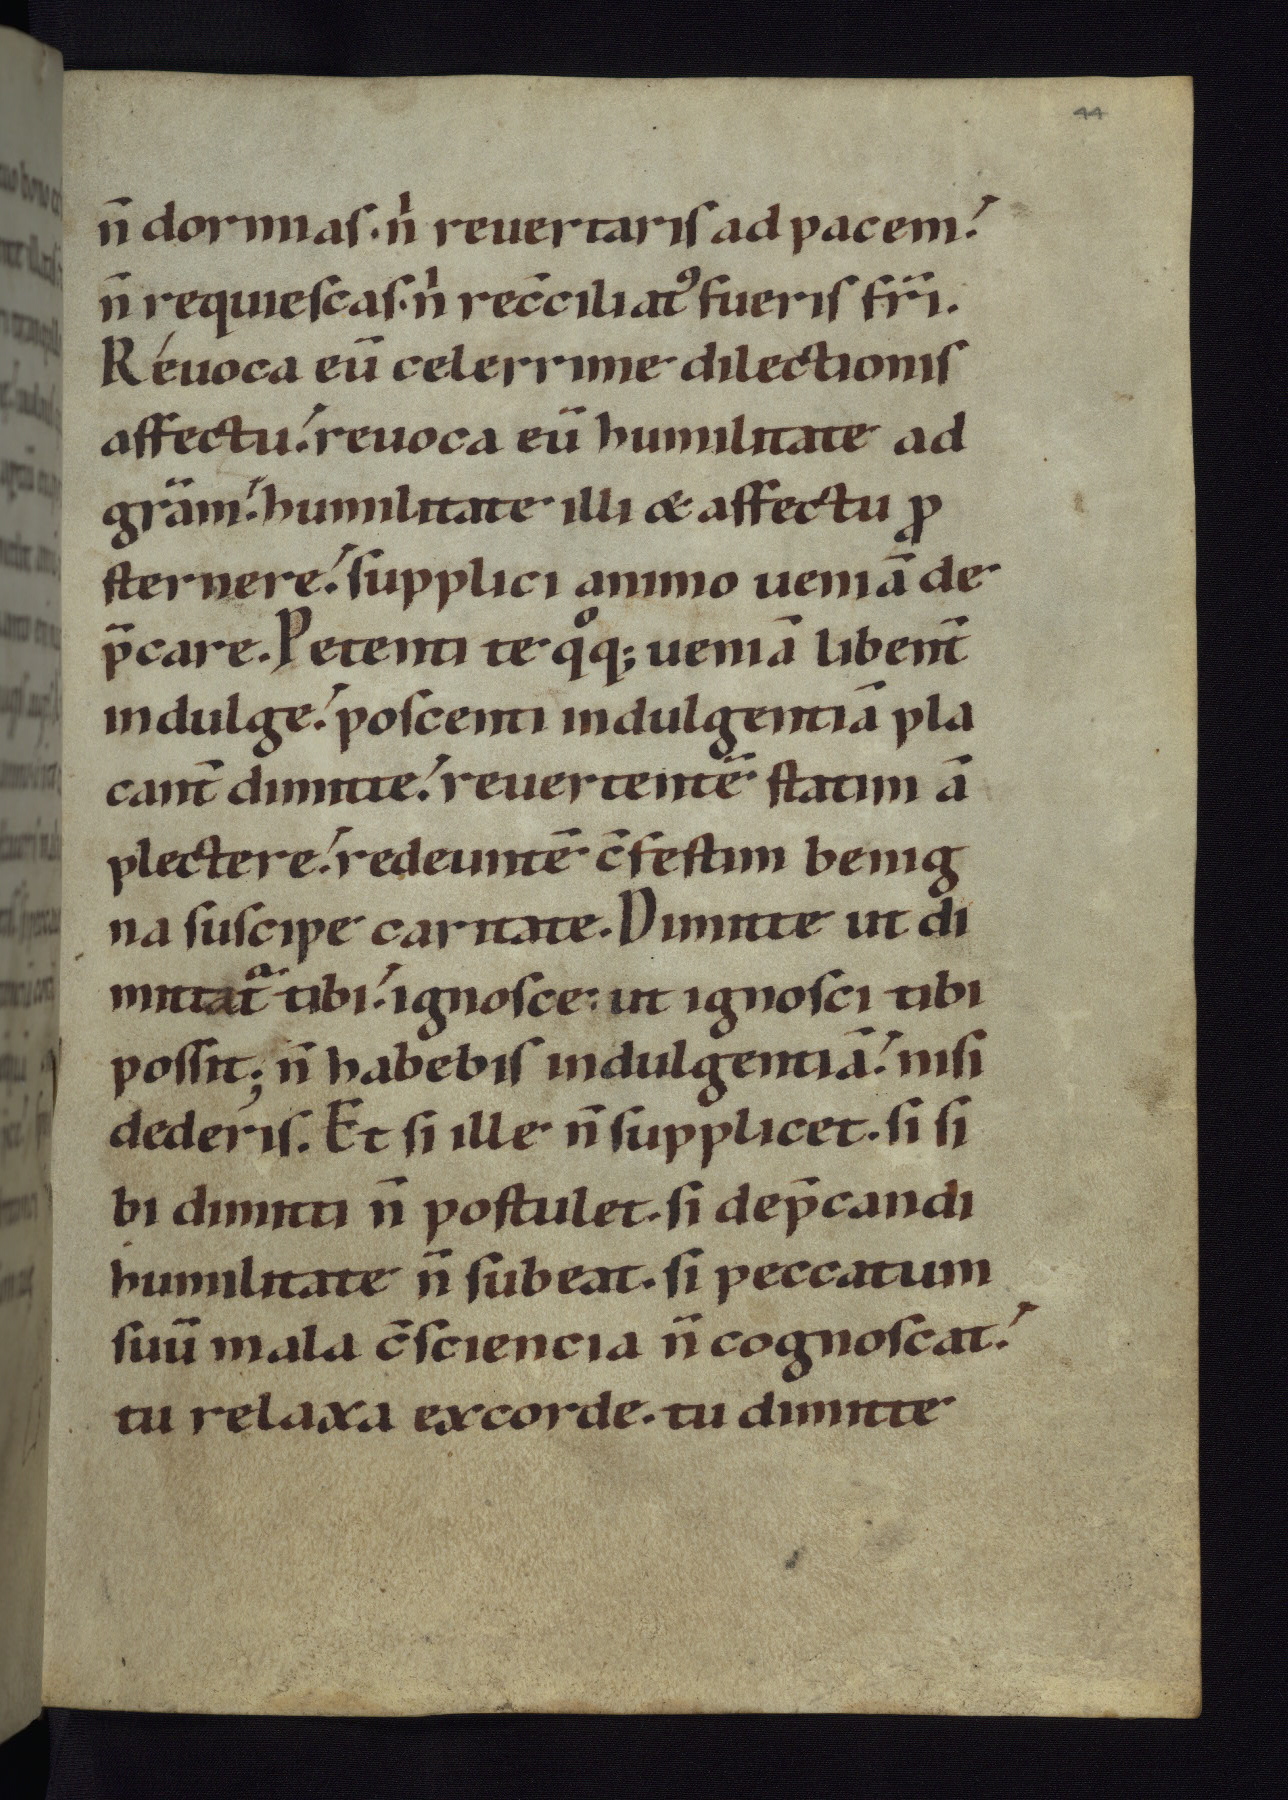 44
n̄ dormias. nͥ reuertaris ad pacem.
n̄ requiescas. nͥ rec̄ciliatꝰ fueris fr̄i.
Réuoca eū celerrime dilectionis
affectu. reuoca eū humilitate ad
gr̄am. humilitate illi & affectu ꝓ
sternere. supplici animo ueniā de
p̄care. Petenti te qͦq; ueniā libent̄
indulge. poscenti indulgentiā pla
cant̄ dimitte. reuertentē statim ā
plectere. redeuntē c̄festim benig
na suscipe caritate. Dimitte ut di
mittat̄ᷓ tibi. ignosce: ut ignosci tibi
possit; n̄ habebis indulgentiā. nisi
dederis. Et si ille n̄ supplicet. si si
bi dimitti n̄ postulet. si dep̄candi
humilitate n̄ subeat. si peccatum
suū mala c̄sciencia n̄ cognoscat.
tu relaxa excorde. tu dimitte